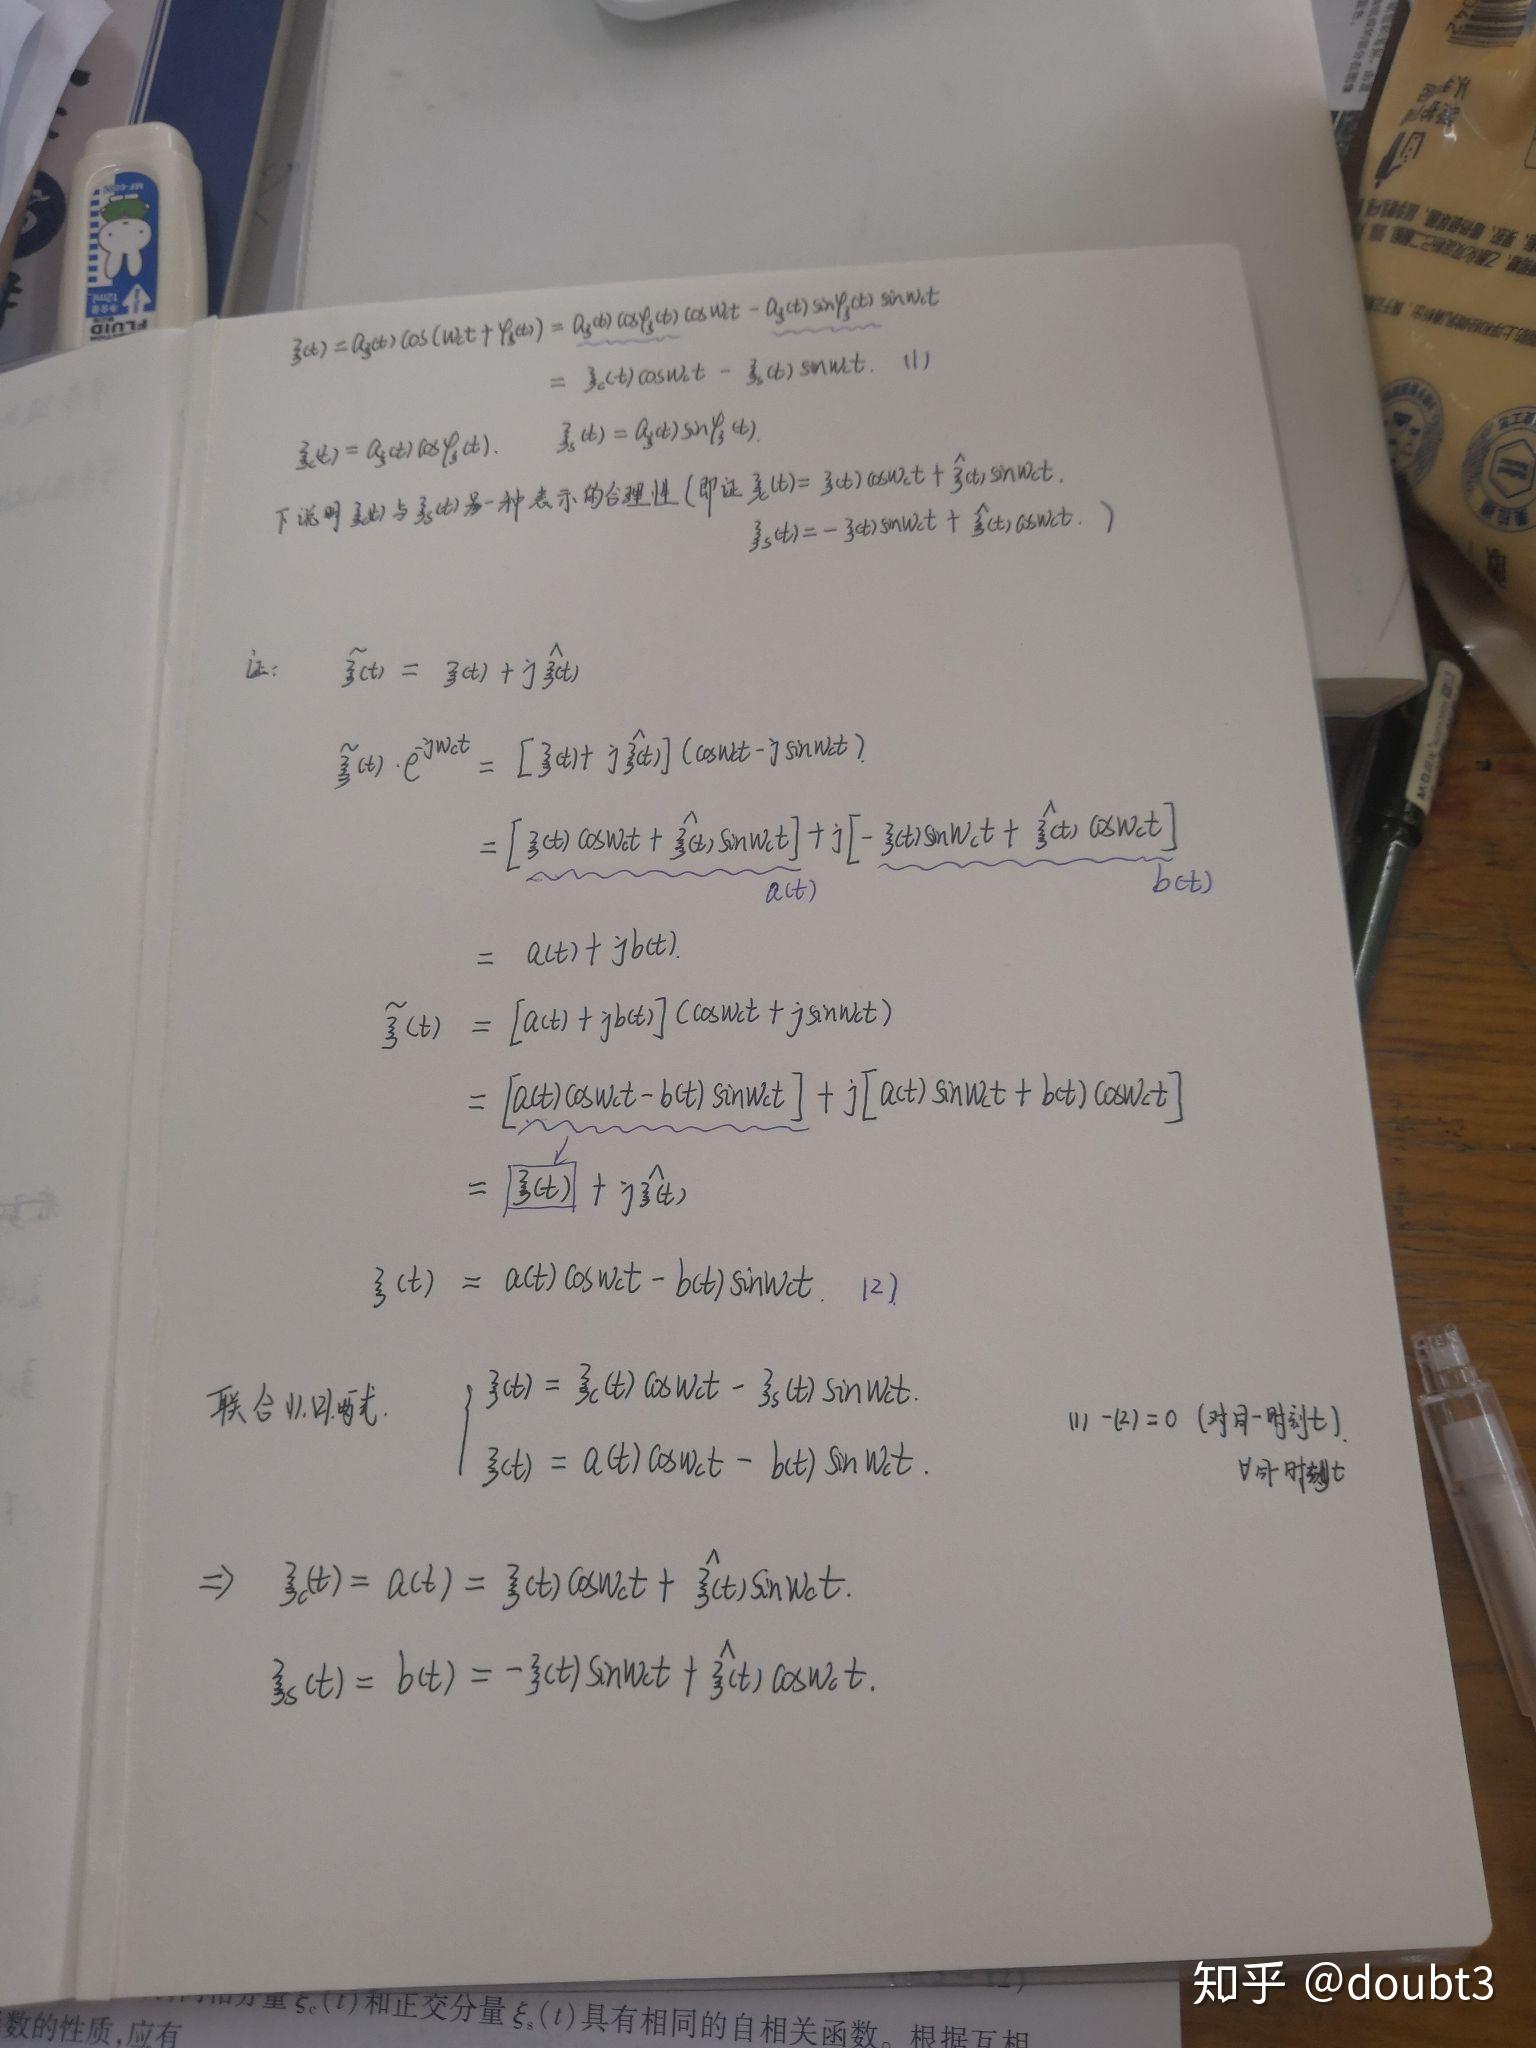 ξ(t) = aξ(t) cos(ωct + φξ(t)) = aξ(t) cosφξ(t) cosωct − aξ(t) sinφξ(t) sinωct
= ξc(t) cosωct − ξs(t) sinωct. (1)
ξc(t) = aξ(t) cosφξ(t). ξs(t) = aξ(t) sinφξ(t).
下说明 ξc(t) 与 ξs(t) 另一种表示的合理性 (即证 ξc(t) = ξ(t) cosωct + ξ̂(t) sinωct.
ξs(t) = − ξ(t) sinωct + ξ̂(t) cosωct. )
证: ξ̃(t) = ξ(t) + j ξ̂(t)
ξ̃(t) · e^-jωct = [ξ(t) + j ξ̂(t)] (cosωct − j sinωct).
= [ξ(t) cosωct + ξ̂(t) sinωct] + j[− ξ(t) sinωct + ξ̂(t) cosωct]
a(t) b(t)
= a(t) + jb(t).
ξ̃(t) = [a(t) + jb(t)] (cosωct + j sinωct)
= [a(t) cosωct − b(t) sinωct] + j[a(t) sinωct + b(t) cosωct]
= ξ(t) + j ξ̂(t)
ξ(t) = a(t) cosωct − b(t) sinωct. (2).
联合(1).(2).两式.
ξ(t) = ξc(t) cosωct − ξs(t) sinωct.
ξ(t) = a(t) cosωct − b(t) sinωct.
(1) −(2) = 0 (对同一时刻t).
∀ 时刻t
⇒ ξc(t) = a(t) = ξ(t) cosωct + ξ̂(t) sinωct.
ξs(t) = b(t) = −ξ(t) sinωct + ξ̂(t) cosωct.
MF-6001
12mL
FLUID
分量 ξc(t)和正交分量 ξs(t)具有相同的自相关函数。根据互相
数的性质,应有
知乎 @doubt3